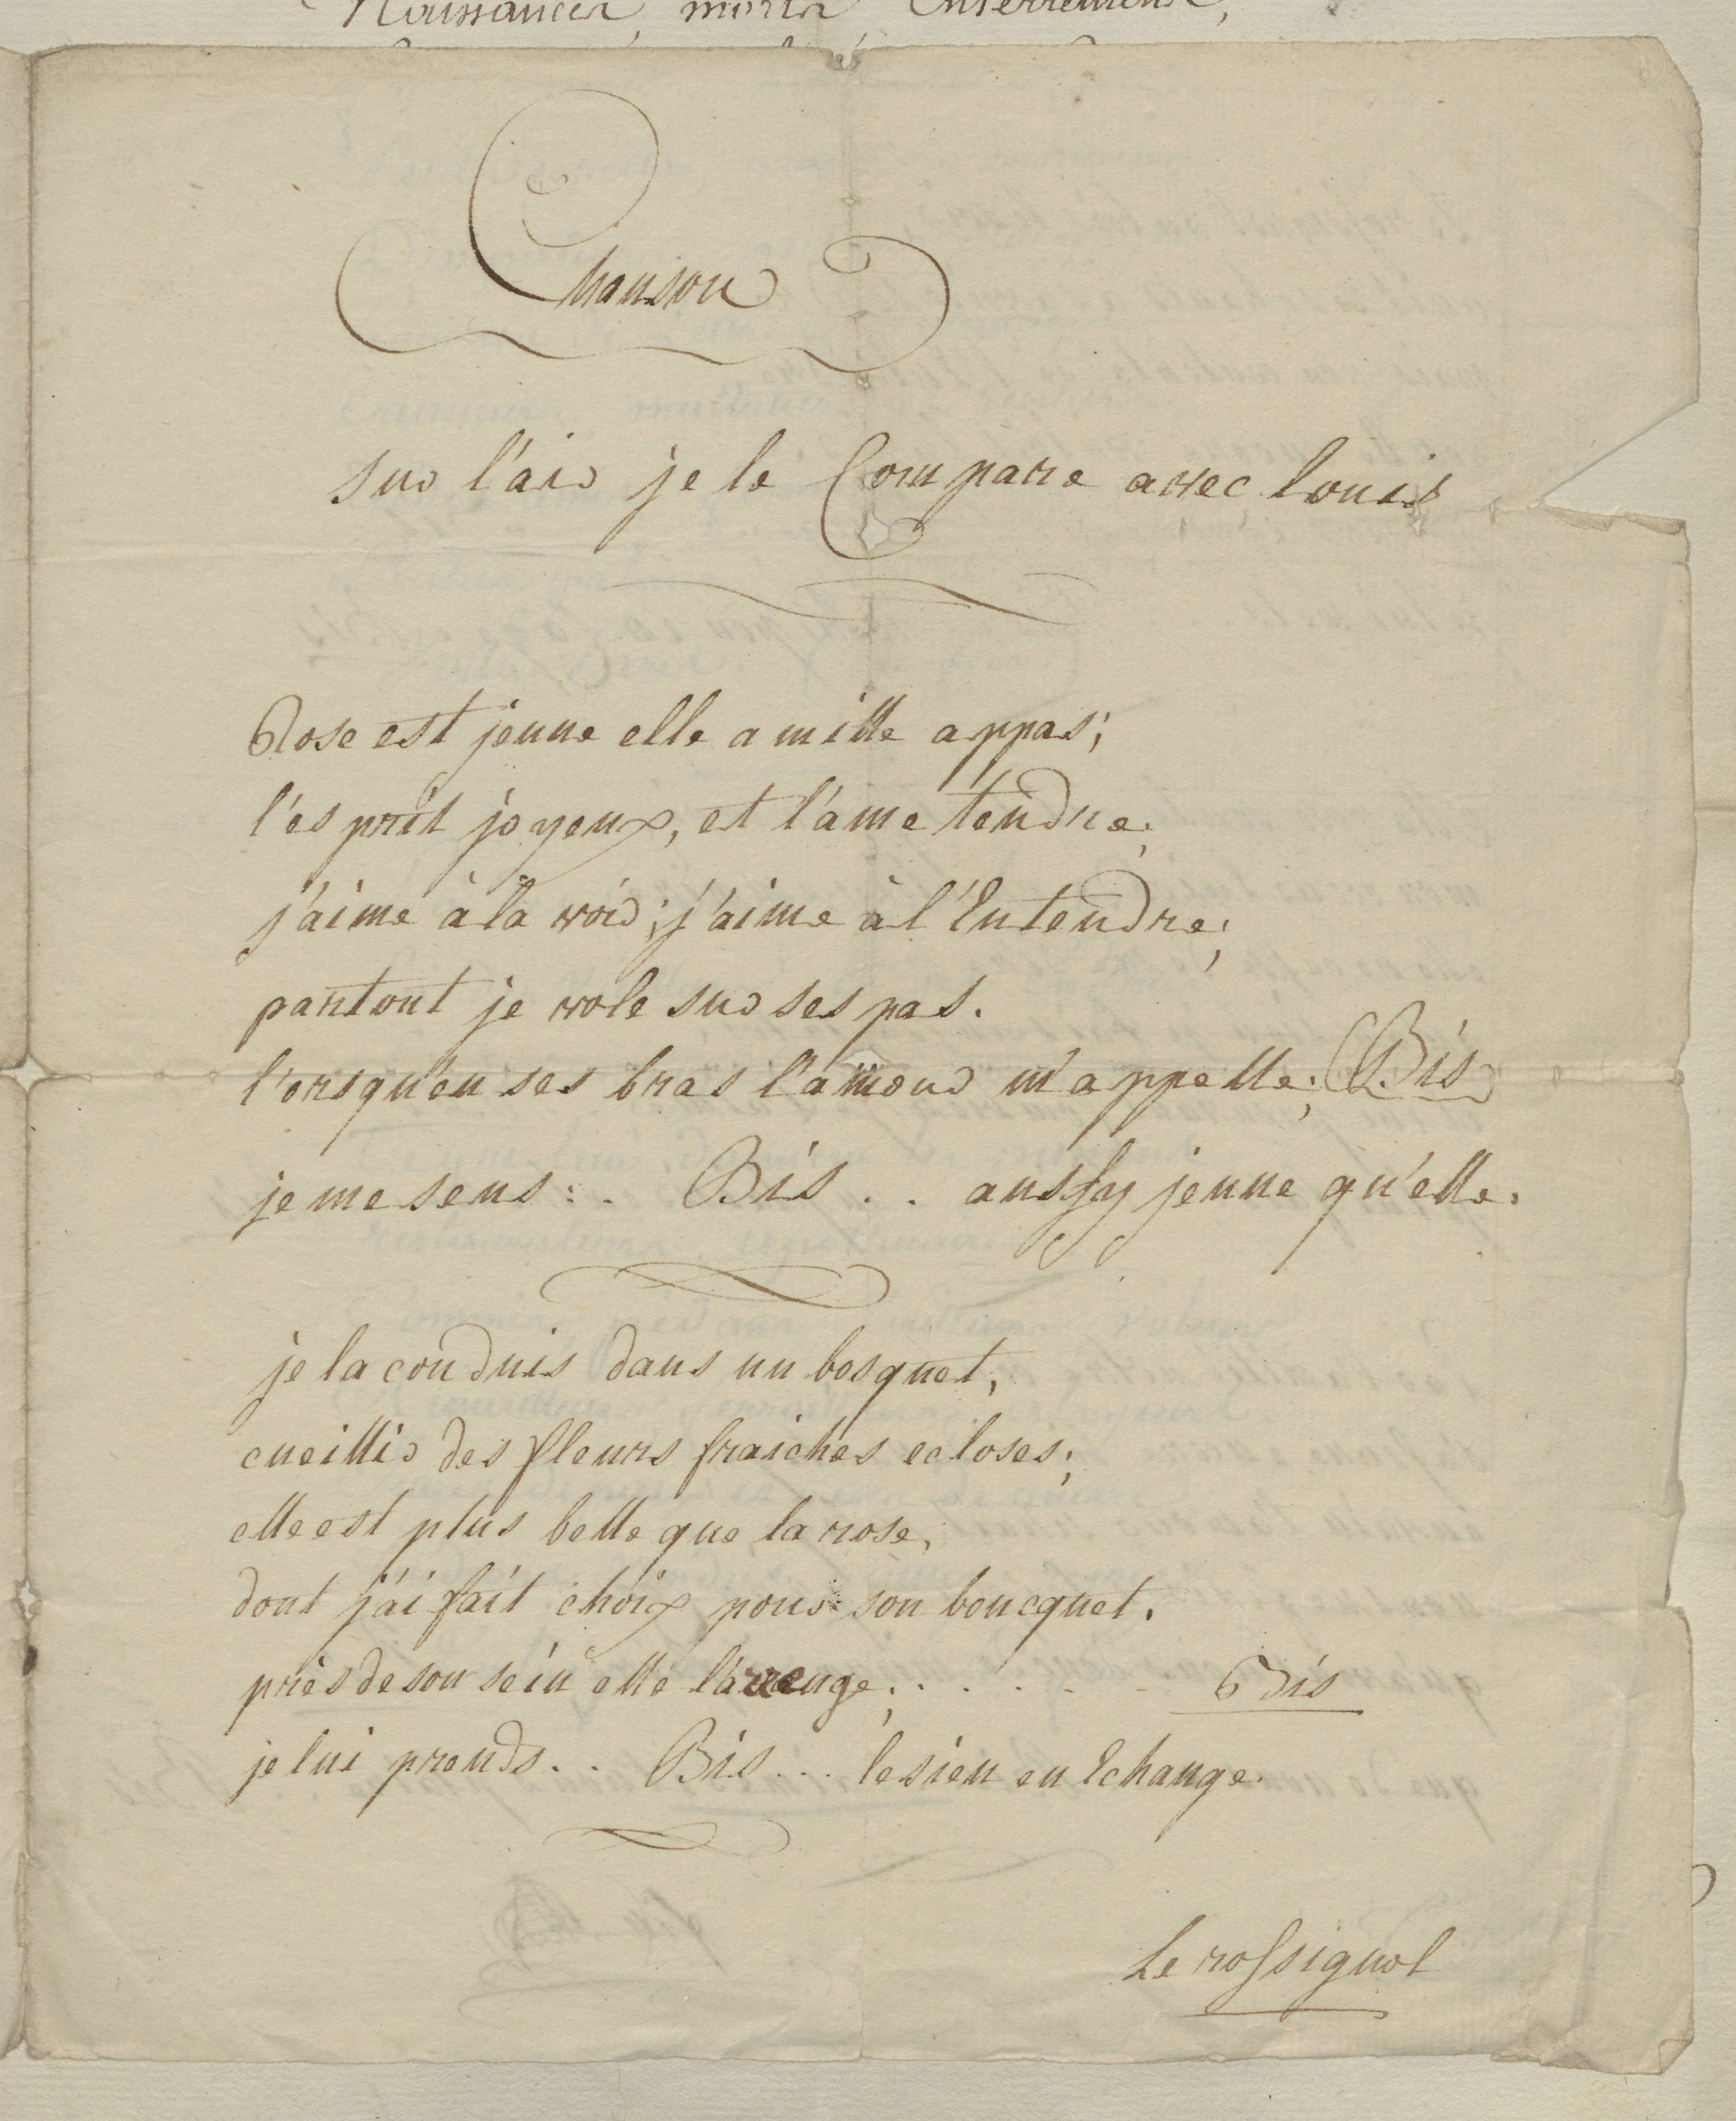 Naissances, morts Enterrements,
Chanson
sur l'air je le Compare avec louis
Rose est jeune elle a mille appas;
l'esprit joyeux, et l'ame tendre;
j'aime à la voir; j'aime à l'Entendre;
partout je vole sur ses pas.
l'orsqu'en ses bras l'amour m'appelle; Bis
je me sens : . Bis . . aussy jeune qu'elle.
je la conduis dans un bosquet,
cueillir des fleurs fraiches ecloses;
elle est plus belle que la rose,
dont j'ai fait choix pour son boucquet.
près de son sein elle l'arrenge; . . . . . Bis
je lui prends . . Bis . . . le sien en Echange.
Le rossignol